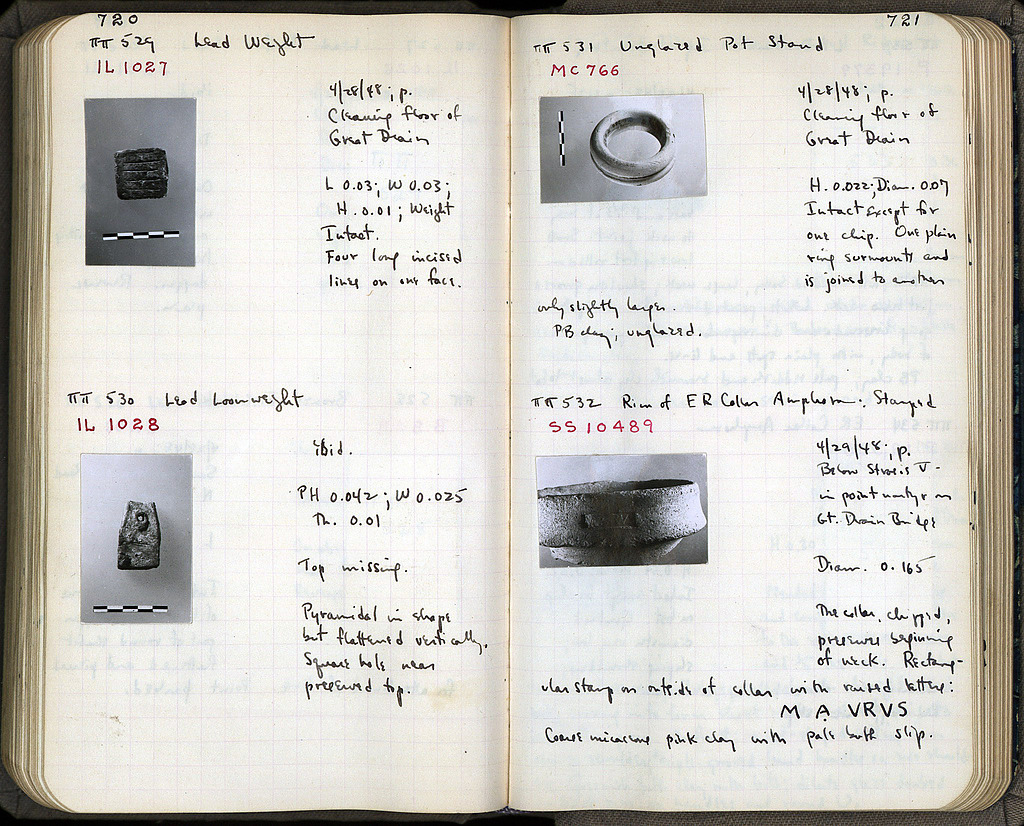 720
ΠΠ 529 Lead Weight
IL 1027
4/28/48; p.
Cleaning floor of
Great Drain
L 0.03; W 0.03;
H. 0.01; Weight
Intact.
Four long incised
lines on one face.
ΠΠ 530 Lead Loomweight
IL 1028
ibid.
PH 0.042; W 0.025
Th. 0.01
Top missing.
Pyramidal in shape
but flattened vertically.
Square hole near
preserved top.
721
ΠΠ 531 Unglazed Pot Stand
MC 766
4/28/48; p.
Cleaning floor of
Great Drain
H. 0.022; Diam. 0.07
Intact except for
one chip. One plain
ring surmounts and
is joined to another
only slightly larger.
PB clay; unglazed.
ΠΠ 532 Rim of ER Collar Amphora: Stamped
SS 10489
4/29/48; p.
Below Strosis V-
in point martyr on
Gt. Drain Bridge
Diam. 0.165
The collar, chipped,
preserves beginning
of neck. Rectang-
ular stamp on outside of collar with raised letters:
M A VRVS
Coarse micaceous pink clay with pale buff slip.